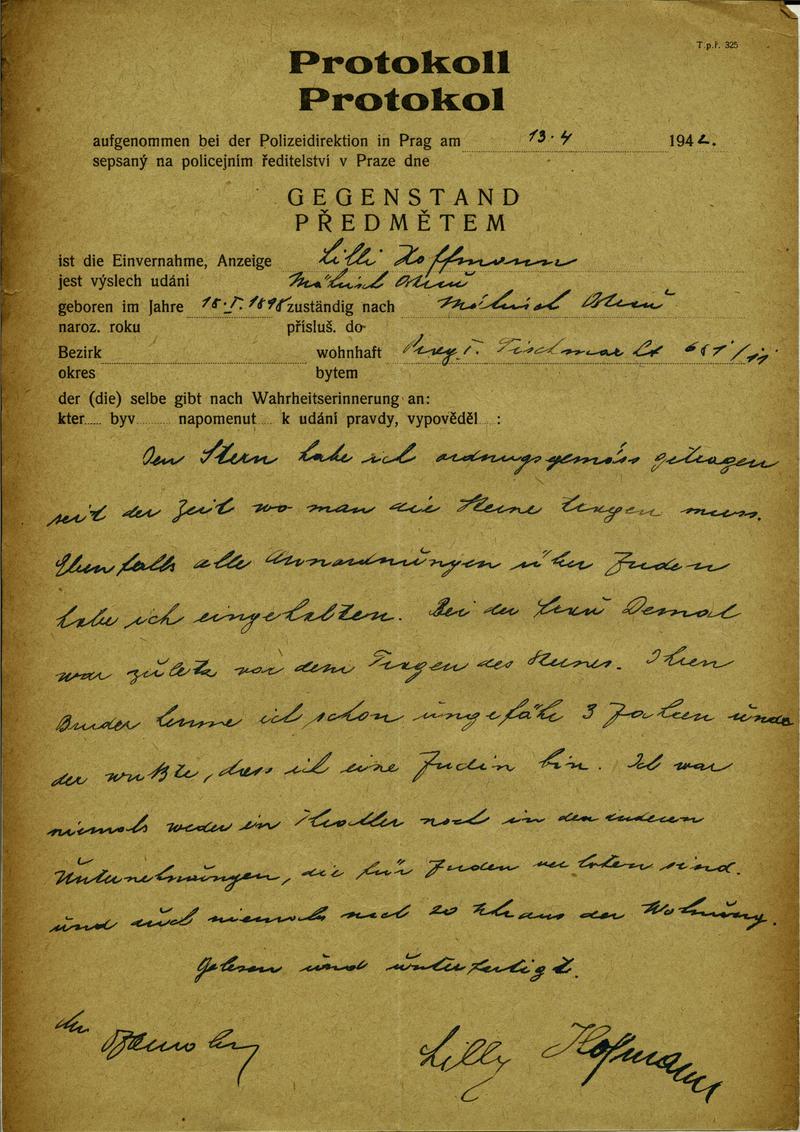 T.p.ř. 325
Protokoll
Protokol
aufgenommen bei der Polizeidirektion in Prag am 13.4 1942.
sepsaný na policejním ředitelství v Praze dne
GEGENSTAND
PŘEDMĚTEM
ist die Einvernahme, Anzeige Lilli Hoffmann
jest výslech udání Mährisch Ostrau
geboren im Jahre 18.I.1898 zuständig nach Mährisch Ostrau
naroz. roku přísluš. do
Bezirk wohnhaft Prag I. 681/11
okres bytem
der (die) selbe gibt nach Wahrheitserinnerung an:
kter..... byv napomenut k udání pravdy, vypověděl :
Den Stern habe ich ordnungsgemäss getragen
seit der Zeit wo man die Sterne tragen muss.
Ebenfalls alle Annordnungen über Juden
habe ich eingehalten. Bei der Frau Demal
war zuletz vor dem Tragen des Sternes. Ihren
Bruder kenne ich schon ungefähr 3 Jahren und
der wußte, dass ich eine Judin bin. Ich war
niemals weder ein Theatler noch in den anderen
Unternehmungen, die für Juden verboten sind.
und auch niemals nach 20 Uhr aus der Wohnung.
Gelesen und unterfertigt.
Lilly Hoffmann